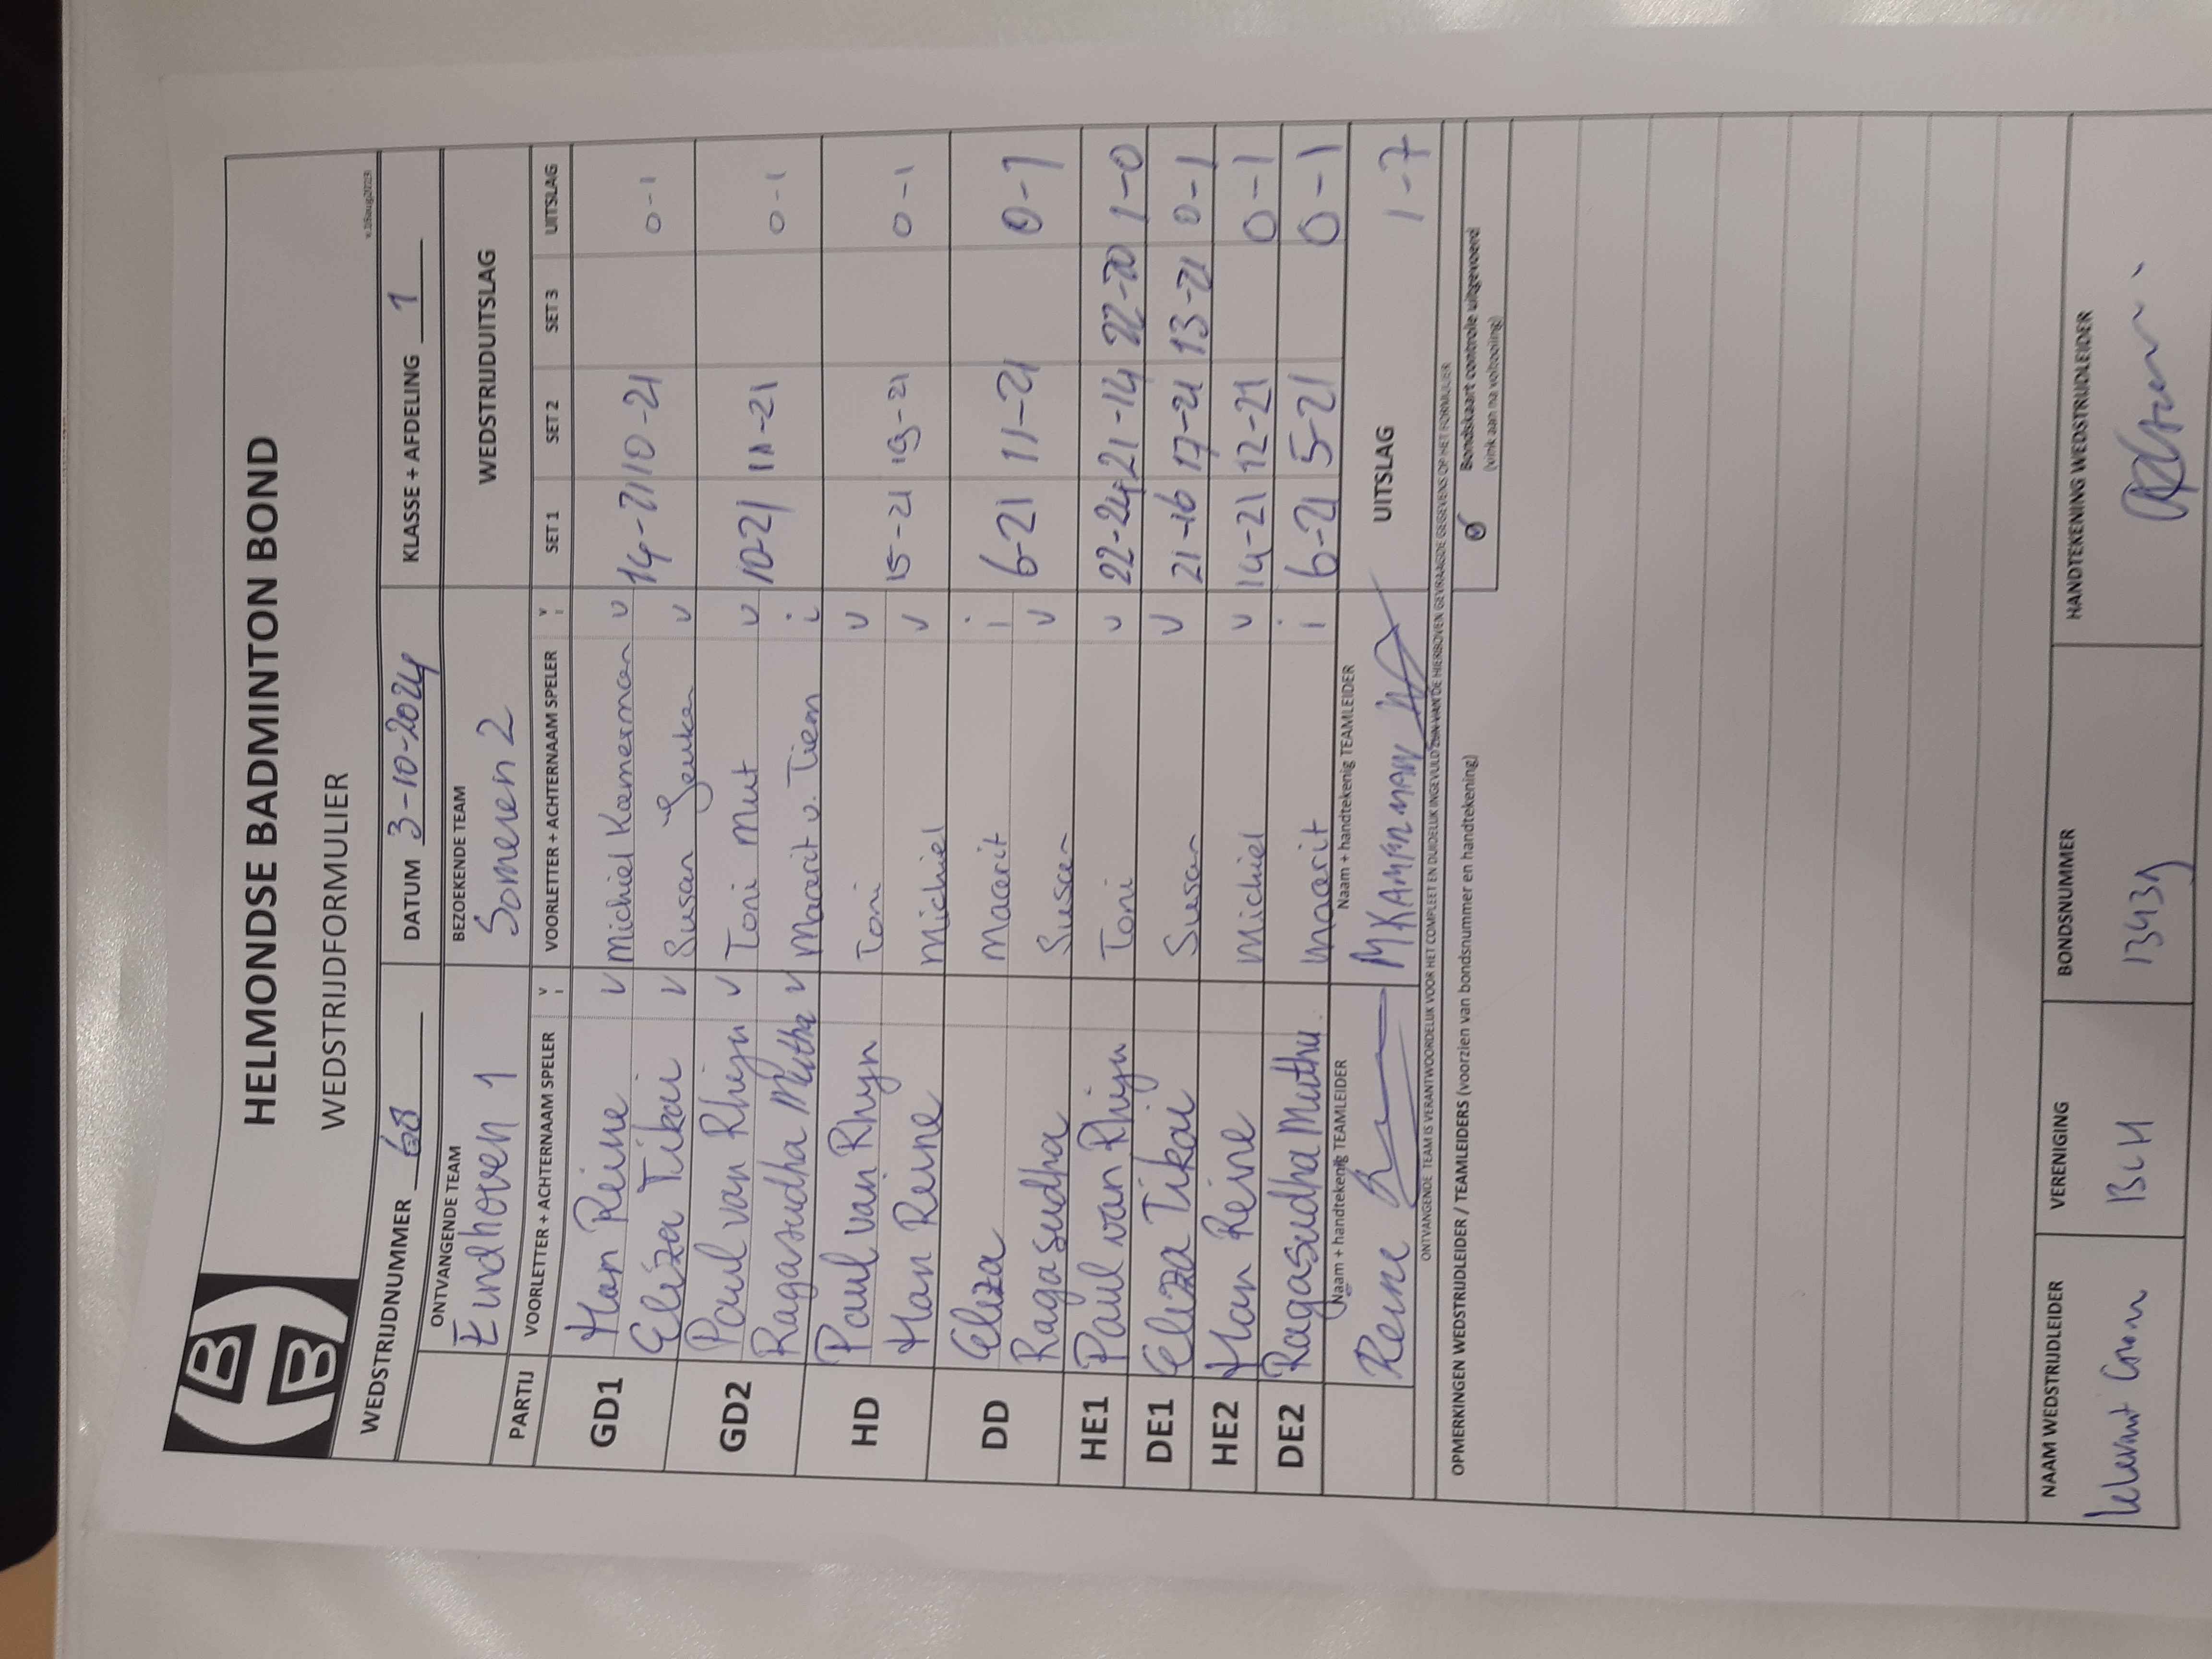 HELMONDSE BADMINTON BOND
WEDSTRIJDFORMULIER
v.18aug2023
WEDSTRIJDNUMMER 68 DATUM 3-10-2024 KLASSE + AFDELING 1
ONTVANGENDE TEAM BEZOEKENDE TEAM WEDSTRIJDUITSLAG
Eindhoven 1 Someren 2
PARTIJ VOORLETTER + ACHTERNAAM SPELER V I VOORLETTER + ACHTERNAAM SPELER V I SET 1 SET 2 SET 3 UITSLAG
GD1 Han Reine v Michiel Kamerman v 14-21 10-21 0-1
Eliza Tikai v Susan v
GD2 Paul van Rhijn v Toni Mut v 10-21 11-21 0-1
Ragasudha Muthu v Maarit v. Tiem i
HD Paul van Rhyn Toni v 15-21 19-21 0-1
Han Reine Michiel v
DD Eliza Maarit i 6-21 11-21 0-1
Ragasudha Susan v
HE1 Paul van Rhijn Toni v 22-24 21-14 22-20 1-0
DE1 Eliza Tikai Susan v 21-16 17-21 13-21 0-1
HE2 Han Reine Michiel v 14-21 12-21 0-1
DE2 Ragasudha Muthu Maarit i 6-21 5-21 0-1
Naam + handtekenig TEAMLEIDER Naam + handtekenig TEAMLEIDER UITSLAG 1-7
Reine MKAMERMAN
ONTVANGENDE TEAM IS VERANTWOORDELIJK VOOR HET COMPLEET EN DUIDELIJK INGEVULD ZIJN VAN DE HIERBOVEN GEVRAAGDE GEGEVENS OP HET FORMULIER
OPMERKINGEN WEDSTRIJDLEIDER / TEAMLEIDERS (voorzien van bondsnummer en handtekening) Bondskaart controle uitgevoerd
(vink aan na voltooiing)
NAAM WEDSTRIJDLEIDER VERENIGING BONDSNUMMER HANDTEKENING WEDSTRIJDLEIDER
BCH 13439